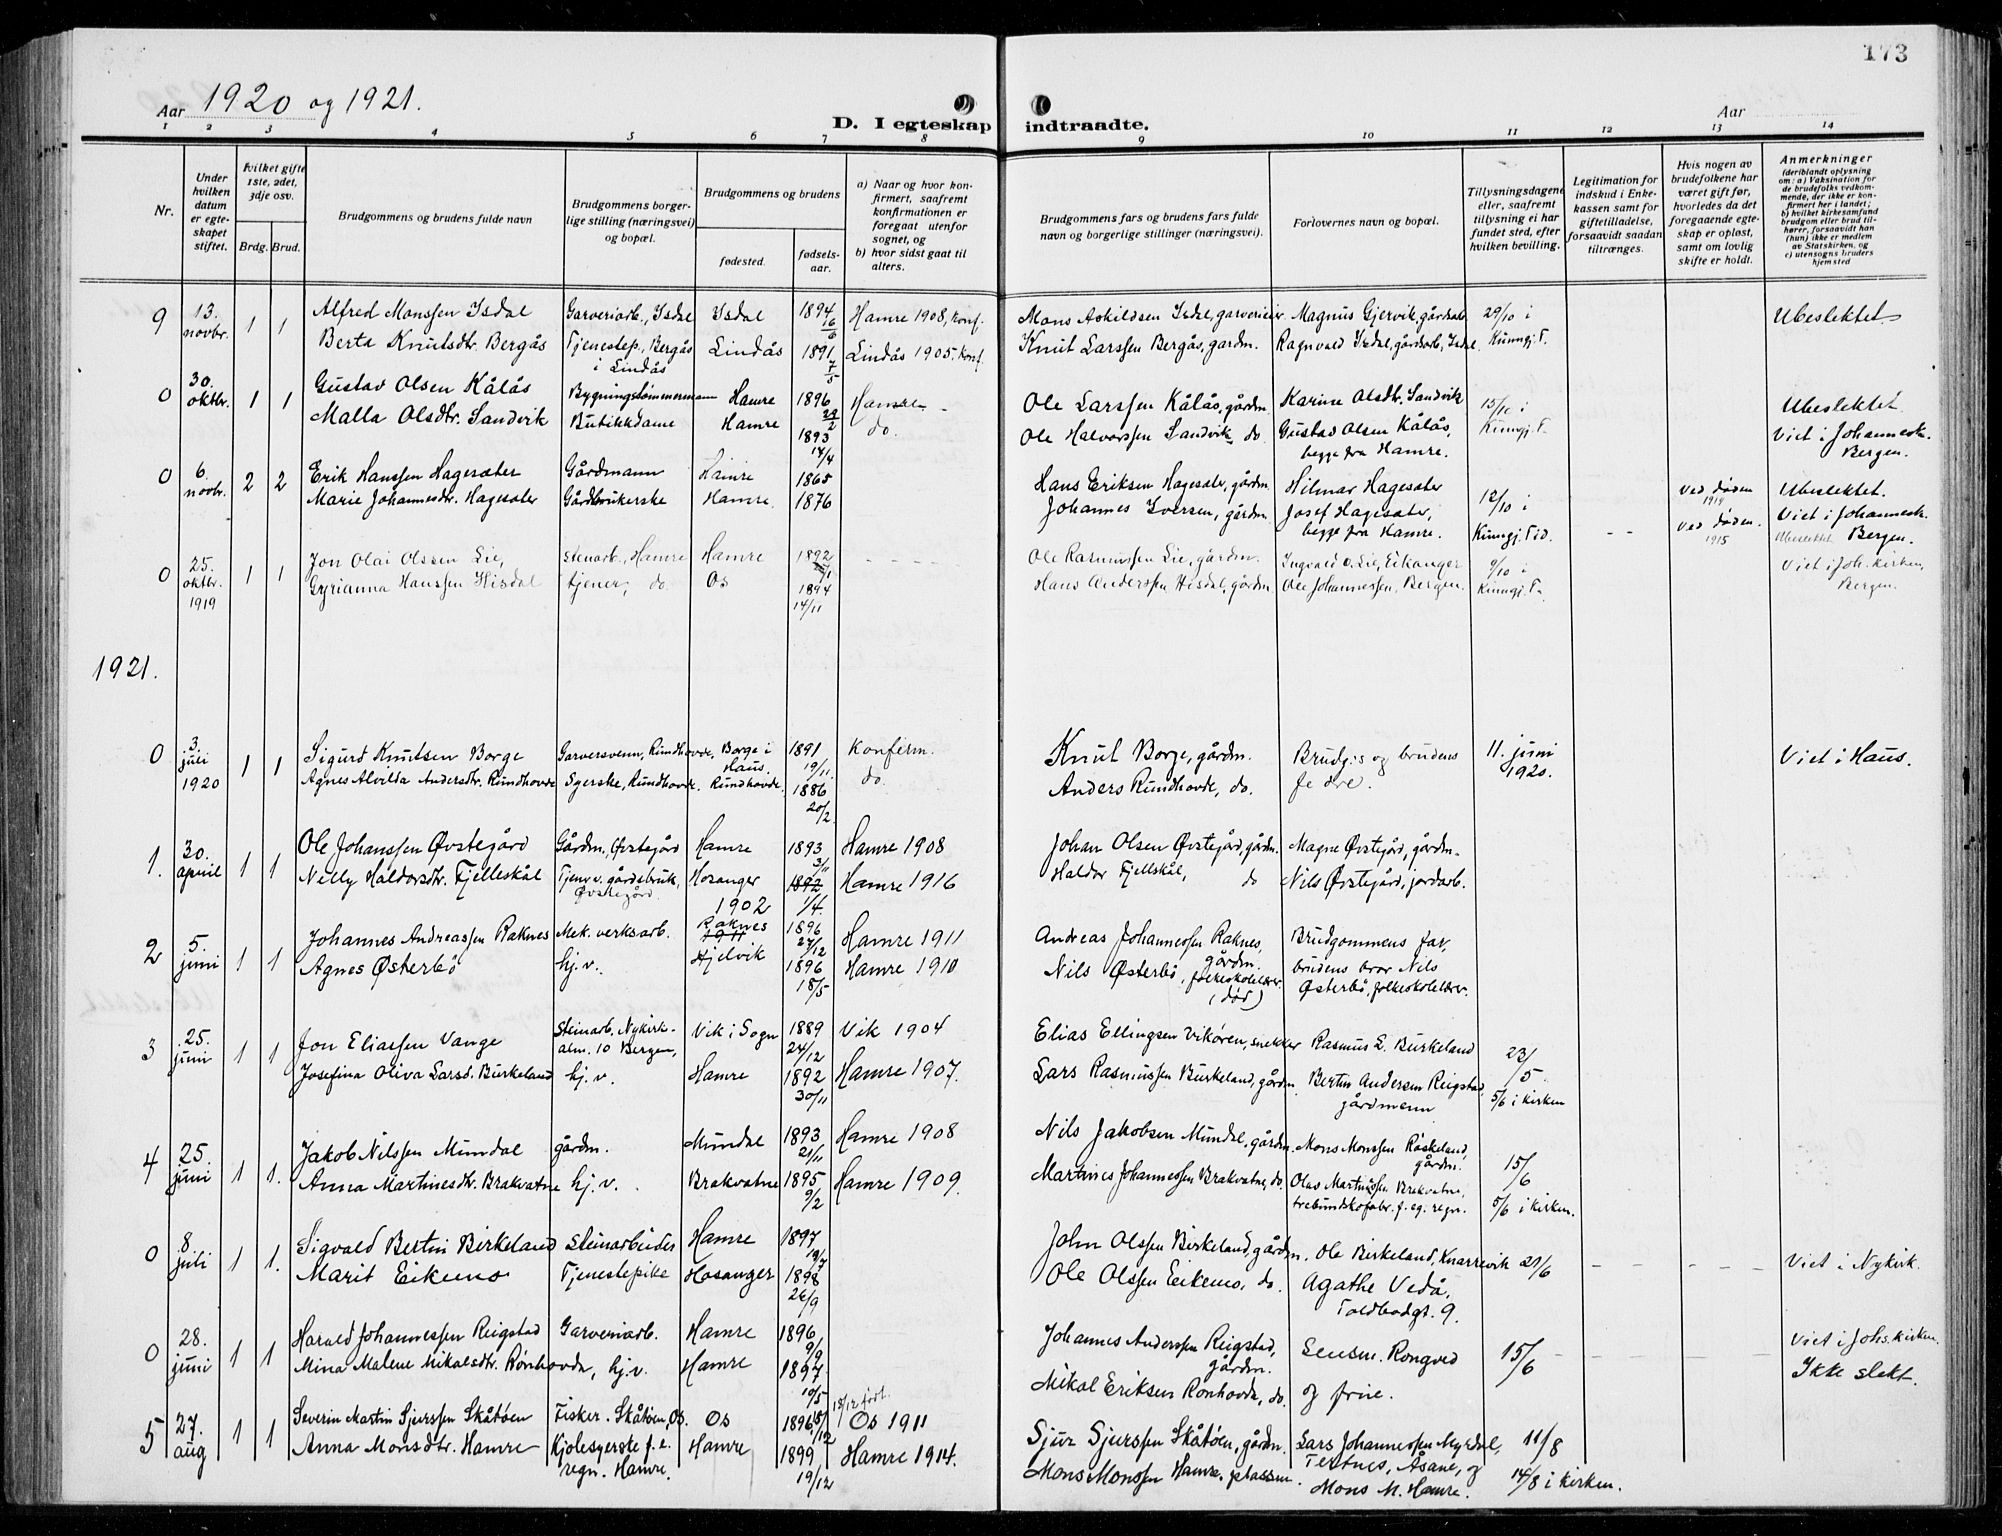 173
Aar 1920 og 1921.
Aar
D. I egteskap indtraadte.
1 2 3 4 5 6 7 8 9 10 11 12 13 14
Nr.
Under hvilken datum er egteskapet stiftet.
Hvilket gifte 1ste, 2det, 3dje osv.
Brdg. Brud.
Brudgommens og brudens fulde navn
Brudgommens borgerlige stilling (næringsvei) og bopæl.
Brudgommens og brudens
fødested.
fødselsaar.
a) Naar og hvor konfirmert, saafremt konfirmationen er foregaat utenfor sognet, og
b) hvor sidst gaat til alters.
Brudgommens fars og brudens fars fulde navn og borgerlige stillinger (næringsvei).
Forlovernes navn og bopæl.
Tillysningsdagene eller, saafremt tillysning ei har fundet sted, efter hvilken bevilling.
Legitimation for indskud i Enkekassen samt for giftetilladelse, forsaavidt saadan tiltrænges.
Hvis nogen av brudefolkene har været gift før, hvorledes da det foregaaende egteskap er opløst, samt om lovlig skifte er holdt.
Anmerkninger (deriblandt oplysning om: a) Vaksination for de brudefolks vedkommende, der ikke er konfirmert her i landet; b) hvilket kirkesamfund brudgom eller brud tilhører, forsaavidt han (hun) ikke er medlem av Statskirken, og c) utensogns bruders hjemsted
9 13. novbr. 1 1 Alfred Monssen Isdal Garveriarb., Isdal Isdal 1894 16/6 Hamre 1908, konf. Mons Askildsen Isdal, garverieier Magnus Gjervik, gårdarb. 29/10 i Ubeslektet
Berta Knutsdtr. Bergås Tjenestep., Bergås i Lindås Lindås 1891 7/5 Lindås 1905. konf. Knut Larssen Bergås, gardm. Ragnvald Isdal, gårdsarb, Isdal. Kunngj. T.
0 30. oktbr. 1 1 Gustav Olsen Kålås Bygningstømmermann Hamre 1896 29/2 Hamre Ole Larssen Kålås, gårdm. Karine Olsdtr. Sandvik 15/10 i Ubeslektet.
Malla Olsdtr. Sandvik Butikkdame Hamre 1893 14/4 do. Ole Halvorssen Sandvik do. Gustav Olsen Kålås, begge fra Hamre. Kunngj. T. Viet i Johannesk. Bergen.
0 6. novbr. 2 2 Erik Hanssen Hagesæter Gårdmann Hamre 1865 Hans Eriksen Hagesæter, gårdm. Hilmar Hagesæter 12/10 i Ved døden 1919 Ubeslektet.
Marie Johannesdtr. Hagesæter Gårdbrukerske Hamre 1876 Johannes Iversen, gårdm. Josef Hagesæter, begge fra Hamre. Kunngj. Tid. - - Ved døden. 1915 Viet i Johannesk. Bergen.
0 25. oktbr. 1919 1 1 Jon Olai Olssen Lie, Stenarb., Hamre Hamre 1892 - - - - Ole Rasmussen Lie, gårdm. Ingvald O. Lie, Eikanger 9/10 i Ubeslektet Viet i Joh. kirken,
Gyrianna Hanssen Hisdal tjener, do. Os 1894 14/11 Hans Anderssen Hisdal, gårdm. Ole Johannessen, Bergen. Kunngj. T. Bergen.
1921.
0 3. juli 1920 1 1 Sigurd Knutsen Borge Garversvenn, Rundhovde, Borge i Haus. 1891 19/11. Konfirm. Knut Borge, gårdm. Brudg.s og brudens 11. juni 1920. Viet i Haus.
Agnes Alvilda Andersdtr. Rundhovde Syerske, Rundhovde. Rundhovde. 1886 20/2. do. Anders Rundhovde, do. fedre.
1. 30. april 1 1 Ole Johanssen Øvstegård Gårdm., Øvstegård Hamre 1893 3/11 Hamre 1908 Johan Olsen Øvstegård, gårdm. Magne Øvstegård, gårdm.
Nelly Haldorsdtr. Fjelleskål Tjen. v. gårdsbruk, Øvstegård. Hosanger 1902 1892 1/4. Hamre 1916 Haldor Fjellskål, do Nils Øvstegård, jordarb.
2 5. juni 1 1 Johannes Andreassen Raknes Mek. verksarb. Raknes 1911 1896 27/12 Hamre 1911 Andreas Johannessen Raknes, gårdm. Brudgommens far,
Agnes Østerbö hj. v. Hjelvik 1896 18/5 Hamre 1910 Nils Østerbö, folkeskolelærer. (død) brudens bror Nils Østerbö, folkeskolelærer.
3 25. juni 1 1 Jon Eliassen Vange Steinarb., Nykirkealm. 10 Bergen, Vik i Sogn 1889 24/12 Vik 1904 Elias Ellingsen Vikøren, snekker Rasmus L. Burkeland 23/5.
Josefina Oliva Larsd. Burkeland hj. v. Hamre 1892 30/11 Hamre 1907. Lars Rasmussen Burkeland, gårdm. Bertin Andersen Reigstad, gårdmenn 5/6 i kirken
4 25. juni 1 1. Jakob Nilssen Mundal gårdm. Mundal 1893 21/11 Hamre 1908 Nils Jakobsen Mundal, gårdm. Mons Monssen Röskeland, gårdm. 15/6
Anna Martinesdtr. Brakvatne hj. v. Brakvatne 1895 9/2 Hamre 1909. Martines Johannessen Brakvatne, do. Olav Martinssen Brakvatne, trebundskofabr. f. eg. regn. 5/6 i kirken.
0 8. juli 1 1. Sigvald Bertin Birkeland Steinarbeider Hamre 1897 19/7 John Olssen Birkeland, gårdm. Ole Birkeland, Knarrevik 21/6 - - - - Viet i Nykirk.
Marit Eikemo Tjenestepike Hosanger 1898 26/9 Ole Olssen Eikemo, do. Agathe Vedå, Toldbodgt. 9.
0 28. juni 1 1 Harald Johannessen Reigstad Garveriarb. Hamre 1896 9/9 Johannes Anderssen Reigstad, gårdm. Sensm. Rongved 15/6 - - - - Viet i Johs. kirken.
Mina Malene Mikalsdtr. Rønhovde, hj. v. Hamre 1897 19/5 Mikal Eriksen Ronhovde, do. og frue. Ikke slekt.
5 27. aug 1 1 Severin Martin Sjurssen Skåtøen Fisker. Skåtöen, Os. Os 1896 15/12 18/12 født. Os 1911 Sjur Sjurssen Skåtöen, gårdm. Lars Johannessen Myrdal, Tertnes, Åsane, og 11/8
Anna Monsdtr. Hamre Kjolesyerske f. e. regn. Hamre. Hamre 1899 19/12 Hamre 1914. Mons Monssen Hamre, plassm. Mons M. Hamre. 14/8 i kirken.